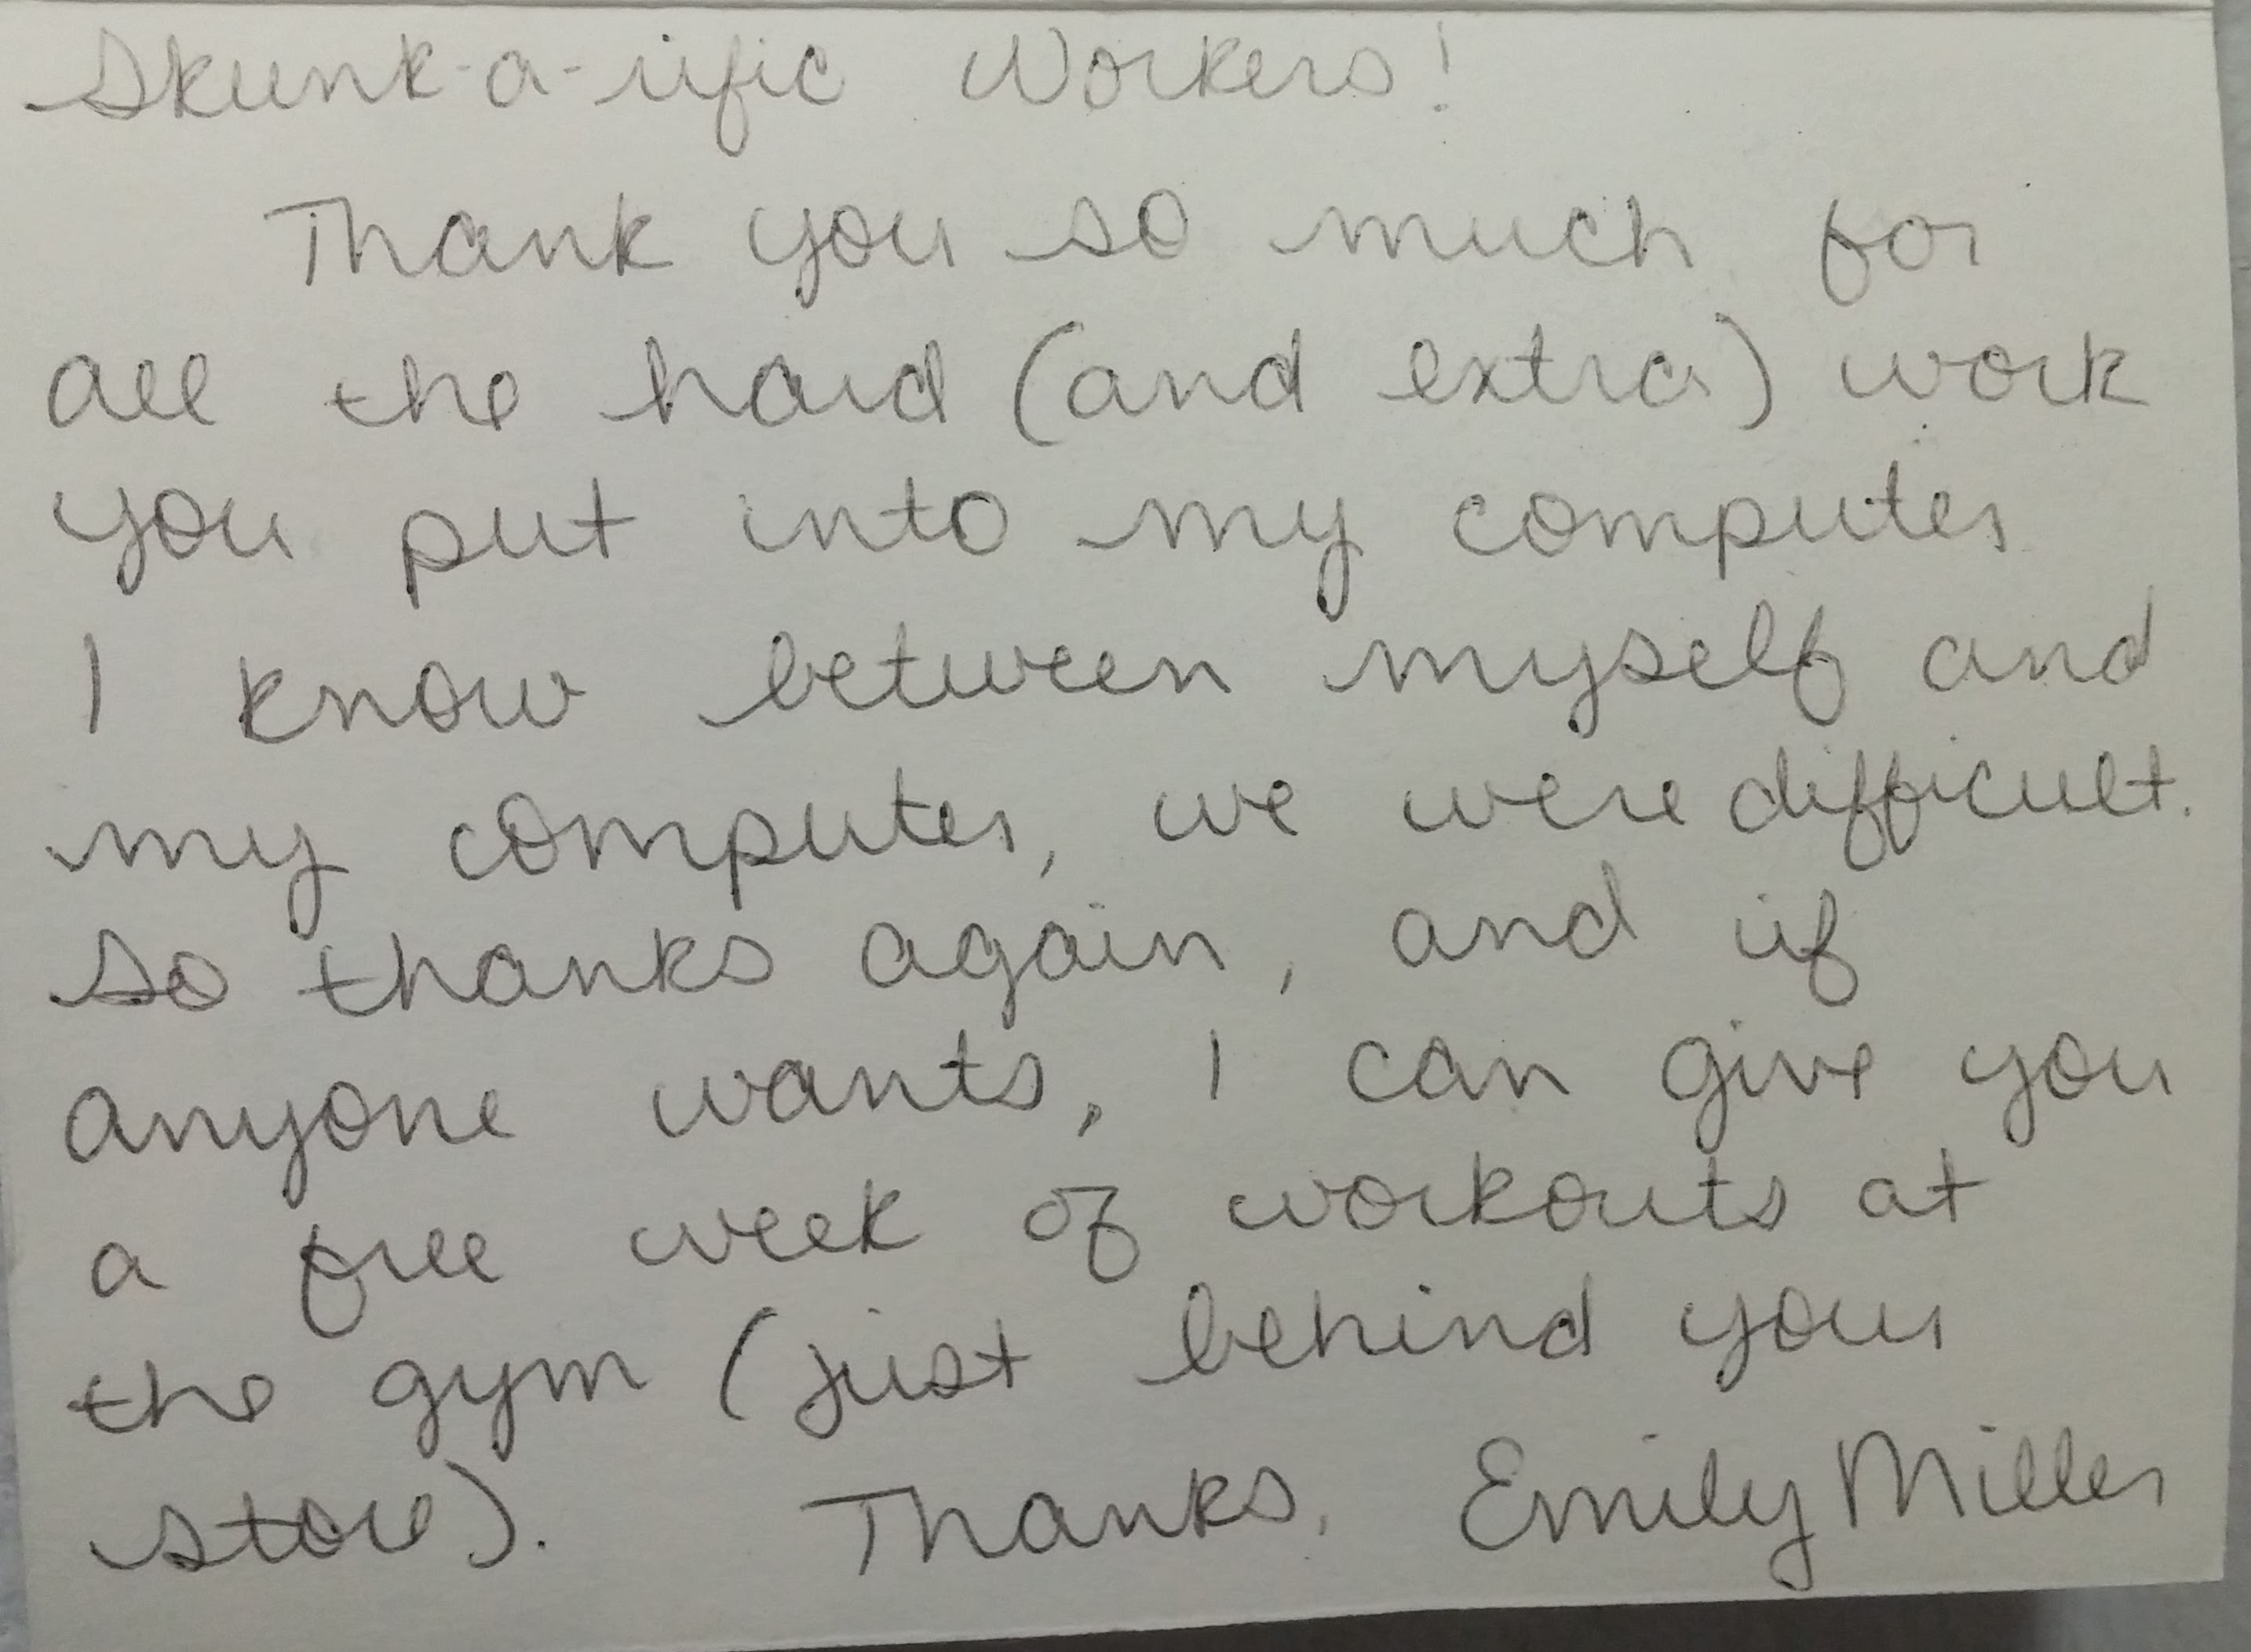 Skunk-a-ific Workers!
Thank you so much for
all the hard (and extra) work
you put into my computer
I know between myself and
my computer, we were difficult.
So thanks again, and if
anyone wants, I can give you
a free week of workouts at
the gym (just behind your
store). Thanks, Emily Miller